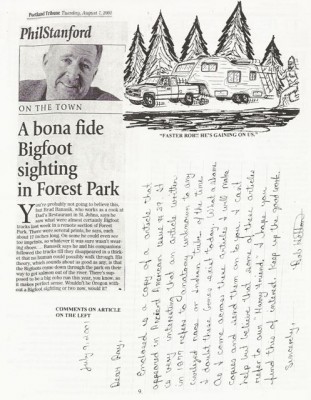 Portland Tribune Tuesday, August 7, 2001
PhilStanford
ON THE TOWN
A bona fide
Bigfoot
sighting
in Forest Park
You're probably not going to believe this,
but
who works as a cook at
Dad's Restaurant in St. Johns, says he
saw what were almost certainly Bigfoot
tracks last week in a remote section of Forest
Park. There were several prints, he says, each
about 17 inches long. On some he could even see
toe imprints, so whatever it was wasn't wear-
ing shoes. ... Ransom says he and his companions
followed the tracks till they disappeared in a thick-
et that no human could possibly walk through. His
theory, which sounds about as good as any, is that
the Bigfoots came down through the park on their
way to get salmon out of the river. There's sup-
posed to be a big coho run this year, you know, so
it makes perfect sense. Wouldn't be Oregon with-
out a Bigfoot sighting or two now, would it?
COMMENTS ON ARTICLE
ON THE LEFT
"FASTER BOB!! HE'S GAINING ON US."
July 9, 2001
Dear Ray,
Enclosed is a copy of a article that
appeared in
issue # 27. It
is very interesting that an article written
in 1879 refers to anatomy unknown to any
zoology name or Indian
of the time.
I doubt these
today. What a shame
As I come across these articles I will make
copies and send them on to you. I can't
help but believe that some of these articles
refer to our Hairy Friend. I hope you
find this of interest. Keep up the good work.
Sincerely,
Bob